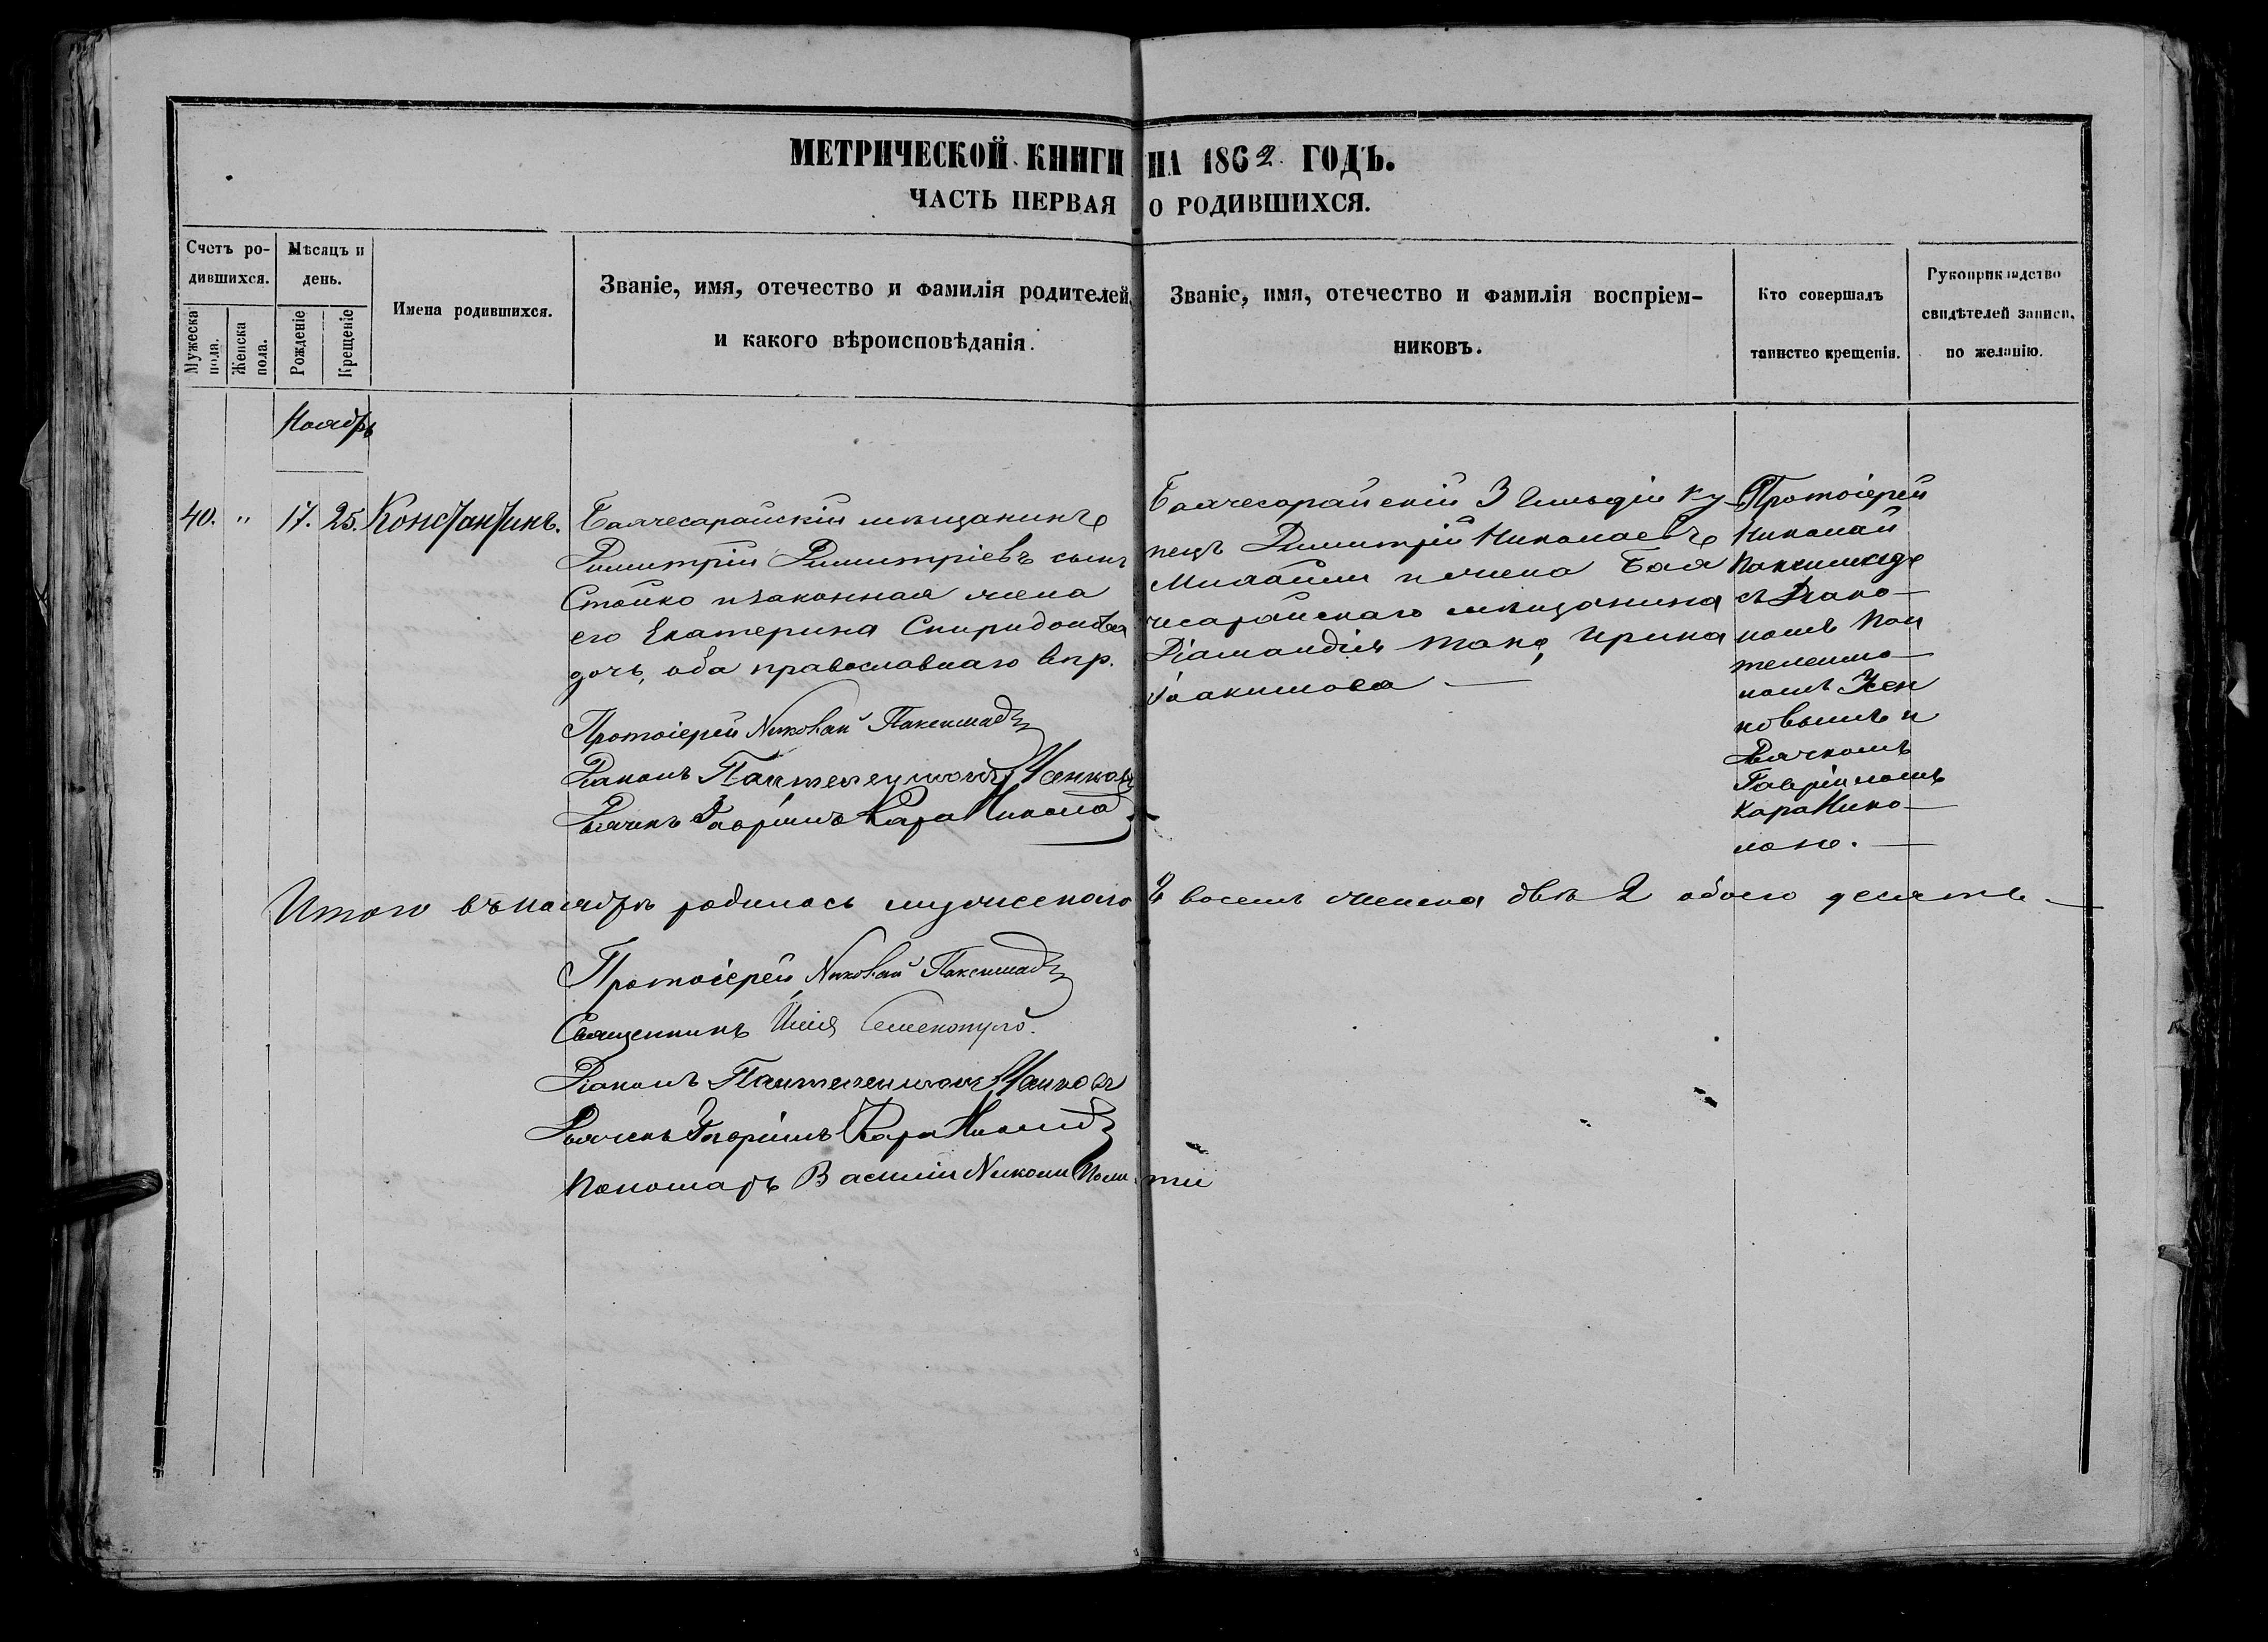 МЕТРИЧЕСКОЙ КНИГИ НА 1862 ГОДЪ.
ЧАСТЬ ПЕРВАЯ О РОДИВШИХСЯ.
Счетъ ро-
дившихся.
Мужеска
пола.
Женска
пола.
Мѣсяцъ и
день.
Рожденіе
Крещеніе
Имена родившихся.
Званіе, имя, отечество и фамилія родителей,
и какого вѣроисповѣданія.
Званіе, имя, отечество и фамилія воспріем-
никовъ.
Кто совершалъ
таинство крещенія.
Рукоприкладство
свидѣтелей записи,
по желанію.
Ноябрь
40. " 17. 25. Константинъ.
Бахчесарайскій мѣщанинъ
Димитрій Димитріевъ сынъ
Стойко и законная жена
его Екатерина Спиридонова
дочь, оба православнаго впр.
Протоіерей Николай Паксимадъ
Діаконъ Пантелеимонъ
Дьячекъ Гавріилъ КараНикола
Бахчесарайскій 3 Гильдіи ку-
пецъ Димитрій Николаевъ
и жена Бах
чесарайскаго мѣщанина
Ирина
Іоакимова —
Протоіерей
Николай
Паксимадъ
съ Діако-
номъ Пан
телеимо-
номъ
и
Дьячкомъ
Гавріиломъ
КараНико-
лою. —
Итого въ ноябрѣ родилось мужескаго восемь женска двѣ 2 обоего десять —
Протоіерей Николай Паксимадъ
Священникъ Илія
Діаконъ Пантелеимонъ
Дьячекъ Гавріилъ КараНикола
Пономарь Василій